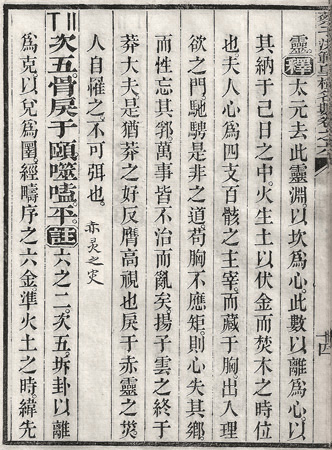 靈。釋太元去此靈淵。以坎為心。此數以離為心。以
其納于己日之中。火生土以伏金而焚木之時。位
也夫人心為四支百骸之主宰。而藏于胸。出入理
欲之門。馳騁是非之道。苟胸不應矩。則心失其鄉。
而性忘其鄉。萬事皆不治而亂矣。揚子雲之終于
莽大夫。是猶莽之好反膺高視也。戾于赤靈之災
人自罹之。不可弭也。
赤灵之灾
次五。骨戾于頤。噬嗑。平。註六之二。次五。坼卦以離
為克。以兌為圍。經疇序之六。金準火土之時。緯先